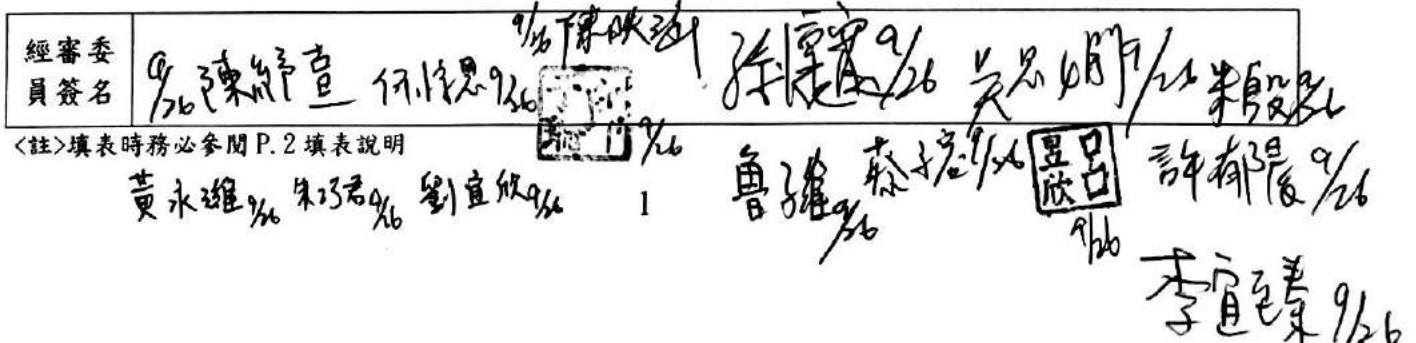 經審委員簽名
9/26 陳紓萱 何愷恩 9/26 9/26 陳映 9/26 徐 9/26 吳思嫺 9/26 朱殷 9/26
<註>填表時務必參閱 P.2 填表說明
黃永 9/26 朱巧君 9/26 劉宜欣 9/26 1 魯 9/26 蔡子宕 9/26 呂昱欣 9/26 許郁晨 9/26
李宜臻 9/26